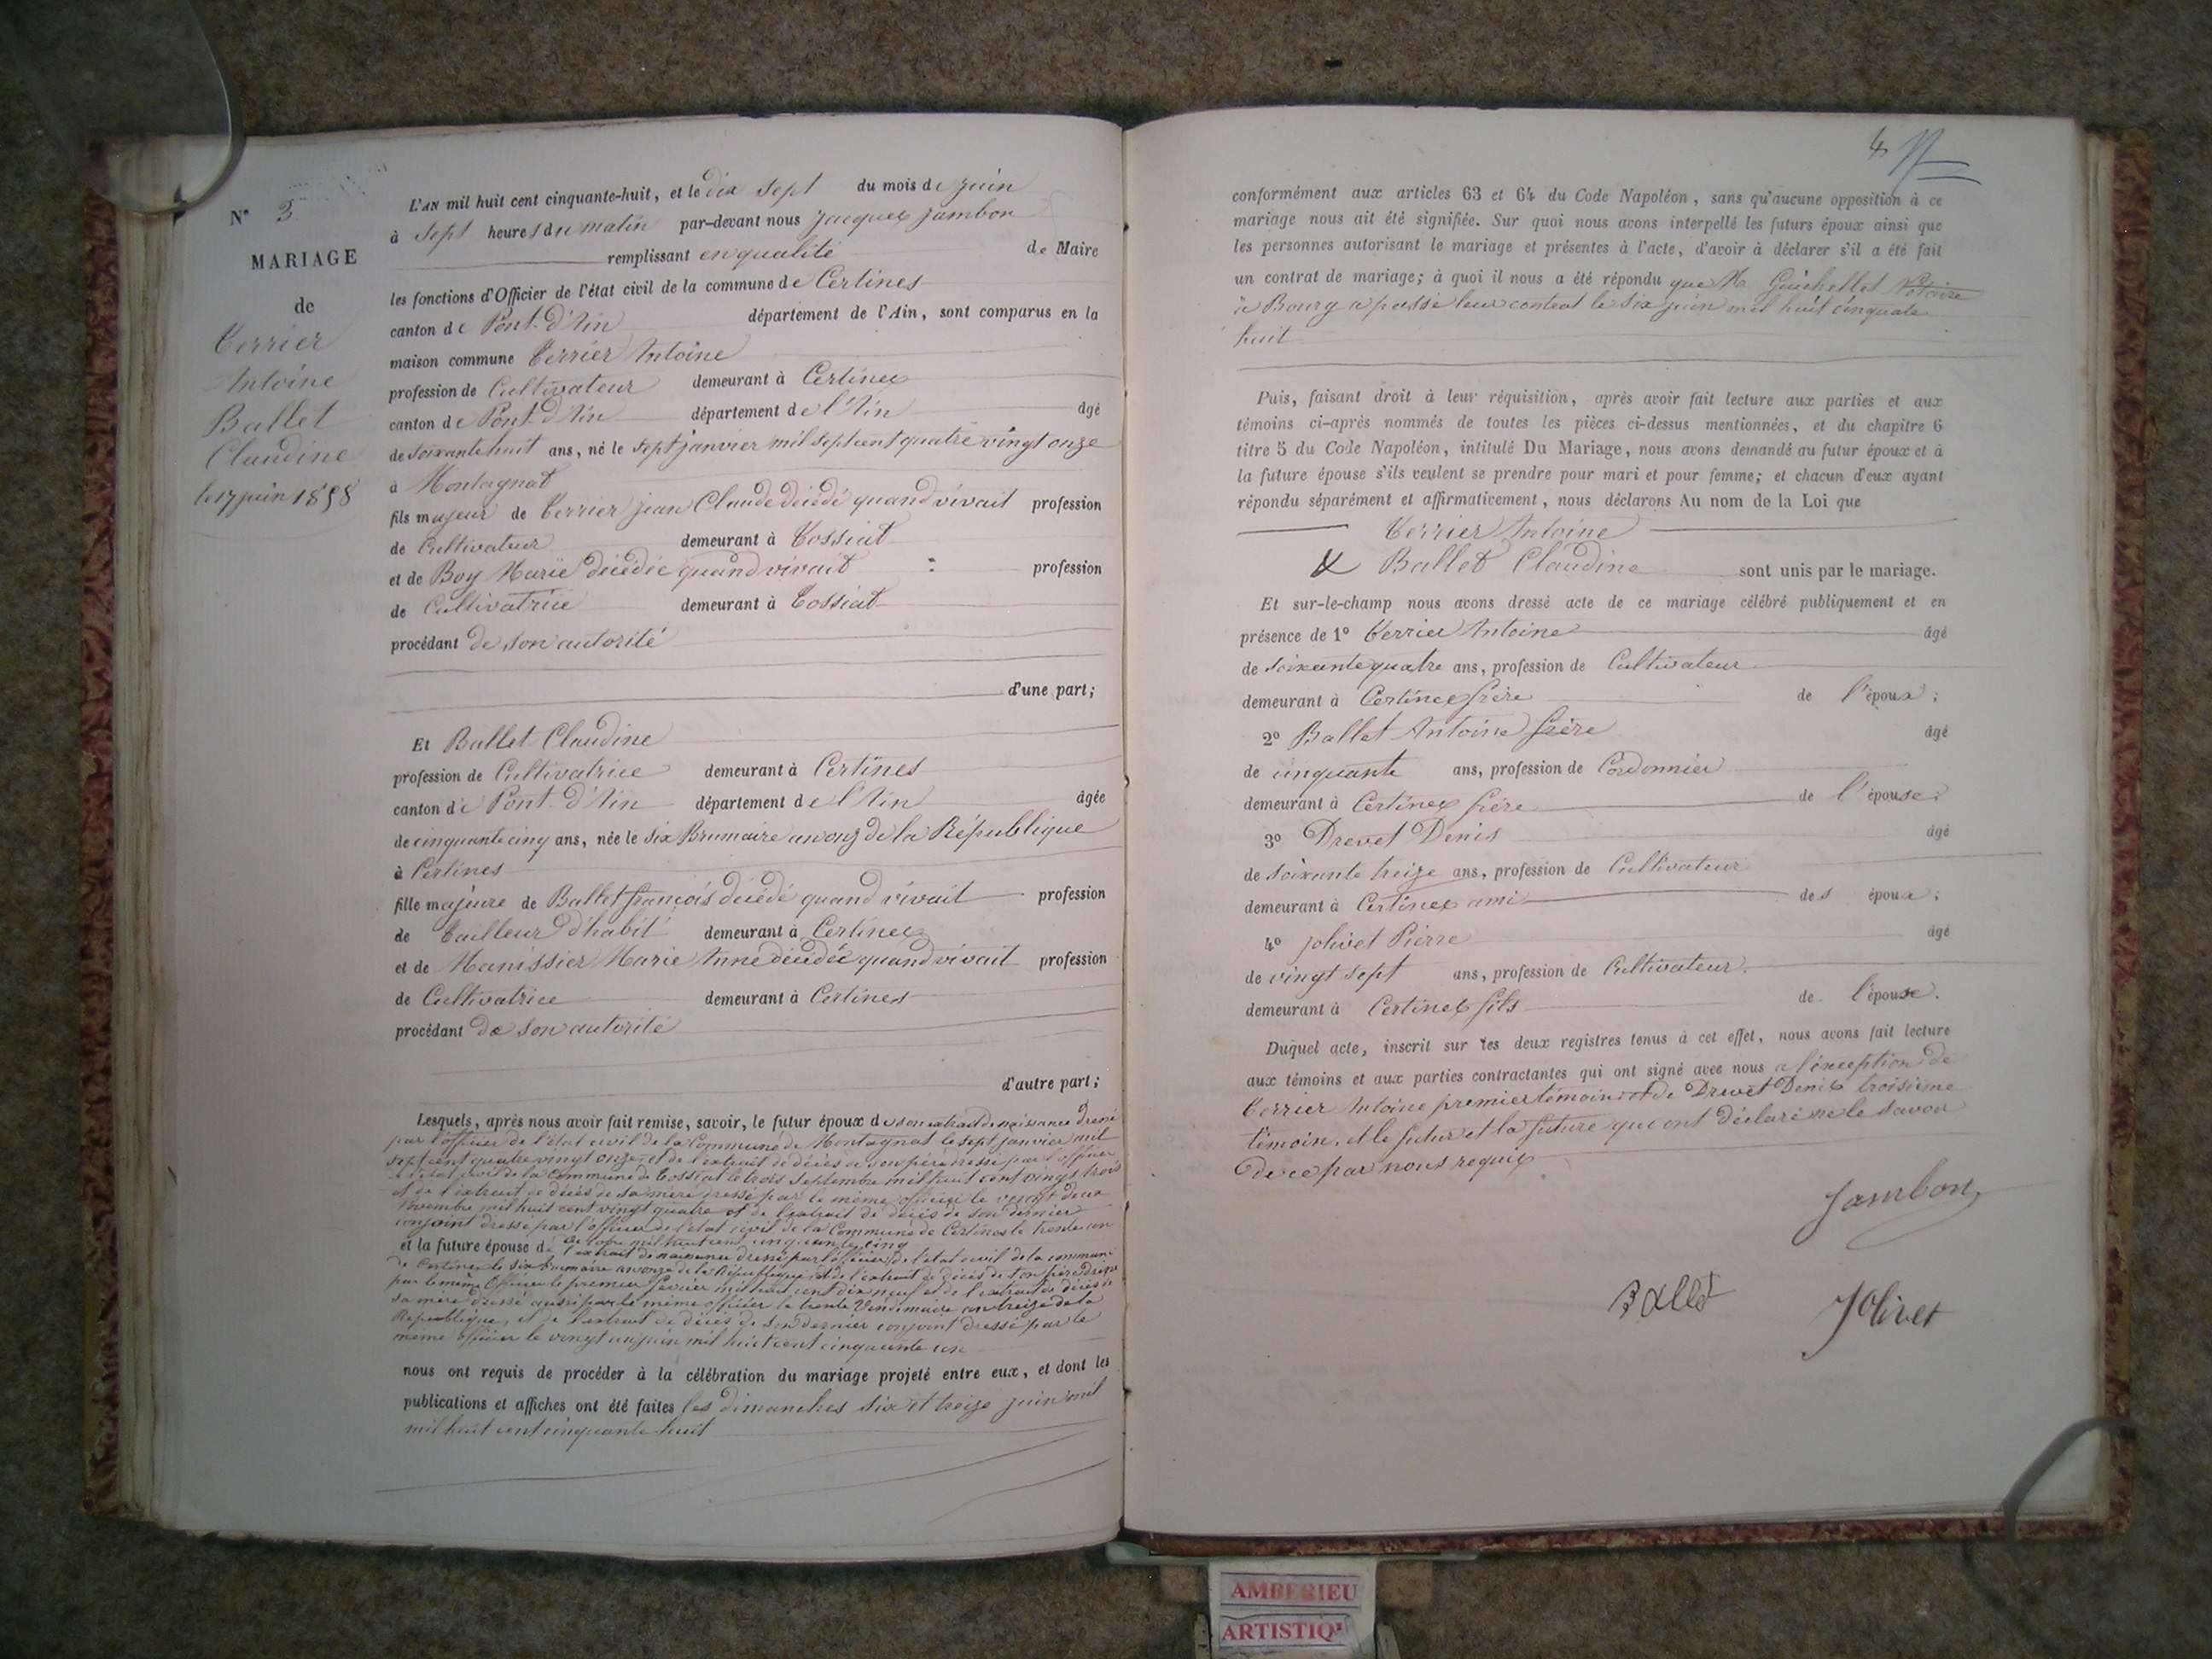 N° 3
MARIAGE
de
Terrier
Antoine
Ballet
Claudine
le 17 juin 1858
L'AN mil huit cent cinquante-huit, et le dix sept du mois de juin
à sept heures du matin par-devant nous Jacques Jambon
remplissant en qualité de Maire
les fonctions d'Officier de l'état civil de la commune de Certines
canton de Pont-d'Ain département de l'Ain, sont comparus en la
maison commune Terrier Antoine
profession de Cultivateur demeurant à Certines
canton de Pont d'Ain département de l'Ain âgé
de soixante huit ans, né le sept janvier mil sept cent quatre vingt onze
à Montagnat
fils majeur de Terrier jean Claude décédé quand vivait profession
de Cultivateur demeurant à Tossiat
et de Boy Marie décédée quand vivait : profession
de Cultivatrice demeurant à Tossiat
procédant de son autorité
d'une part;
Et Ballet Claudine
profession de Cultivatrice demeurant à Certines
canton de Pont-d'Ain département de l'Ain âgée
de cinquante cinq ans, née le six Brumaire an onz de la République
à Certines
fille majeure de Ballet françois décédé quand vivait profession
de Tailleur d'habit demeurant à Certines
et de Manissier Marie Anne décédée quand vivait profession
de Cultivatrice demeurant à Certines
procédant de son autorité
d'autre part;
Lesquels, après nous avoir fait remise, savoir, le futur époux de son extrait de naissance dressé
par l'officier de l'état civil de la Commune de Montagnat le sept janvier mil
sept cent quatre vingt onze et de l'extrait de décès de son père dressé par l'officier
de l'état civil de la Commune de Tossiat le trois septembre mil huit cent vingt trois
et de l'extrait de décès de sa mère dressé par le même officier le vingt deux
Novembre mil huit cent vingt quatre et de l'extrait de décès de son dernier
conjoint dressé par l'officier de l'état civil de la Commune de Certines le trente un
octobre mil huit cent cinquante cinq
et la future épouse de l'extrait de naissance dressé par l'officier de l'état civil de la commune
de Certines le six brumaire an onze de la République et de l'extrait de décès de son père dressé
par le même Officier le premier février mil huit cent dix neuf et de l'extrait de décès de
sa mère dressé aussi par le même officier le trente Vendemiaire an treize de la
République, et de l'extrait de décès de son dernier conjoint dressé par le
même officier le vingt un juin mil huit cent cinquante un
nous ont requis de procéder à la célébration du mariage projeté entre eux, et dont les
publications et affiches ont été faites les dimanches six et treize juin mil
mil huit cent cinquante huit
4
conformément aux articles 63 et 64 du Code Napoléon, sans qu'aucune opposition à ce
mariage nous ait été signifiée. Sur quoi nous avons interpellé les futurs époux ainsi que
les personnes autorisant le mariage et présentes à l'acte, d'avoir à déclarer s'il a été fait
un contrat de mariage; à quoi il nous a été répondu que Me Guichellet Notaire
à Bourg a passé leur contrat le six juin mil huit cinquate
huit
Puis, faisant droit à leur réquisition, après avoir fait lecture aux parties et aux
témoins ci-après nommés de toutes les pièces ci-dessus mentionnées, et du chapitre 6
titre 5 du Code Napoléon, intitulé Du Mariage, nous avons demandé au futur époux et à
la future épouse s'ils veulent se prendre pour mari et pour femme; et chacun d'eux ayant
répondu séparément et affirmativement, nous déclarons Au nom de la Loi que
Terrier Antoine
& Ballet Claudine sont unis par le mariage.
Et sur-le-champ nous avons dressé acte de ce mariage célébré publiquement et en
présence de 1° Terrier Antoine âgé
de soixante quatre ans, profession de Cultivateur
demeurant à Certines frère de l'époux;
2° Ballet Antoine frère âgé
de cinquante ans, profession de Cordonnier
demeurant à Certines frère de l'épouse;
3° Drevet Denis âgé
de soixante treize ans, profession de Cultivateur
demeurant à Certines ami des époux;
4° jolivet Pierre âgé
de vingt sept ans, profession de Cultivateur
demeurant à Certines fils de l'épouse.
Duquel acte, inscrit sur les deux registres tenus à cet effet, nous avons fait lecture
aux témoins et aux parties contractantes qui ont signé avec nous a l'exception de
Terrier Antoine premier témoin et de Drevet Denis troisième
témoin, et le futur et la future qui ont déclaré ne le savoir
de ce par nous requis
Jambon
Ballet
Jolivet
AMBERIEU
ARTISTIQ